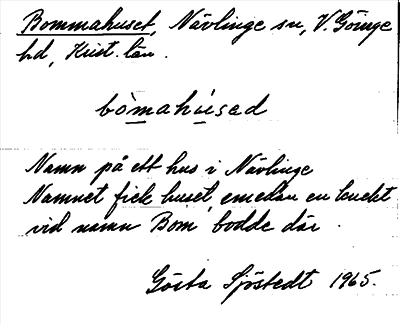 Bommahuset, Nävlinge sn, V. Göinge
hd, Krist. län.
bòmahùsəd
Namn på ett hus i Nävlinge
Namnet fick huset, emedan en
vid namn Bom bodde där.
Gösta Sjöstedt 1965.